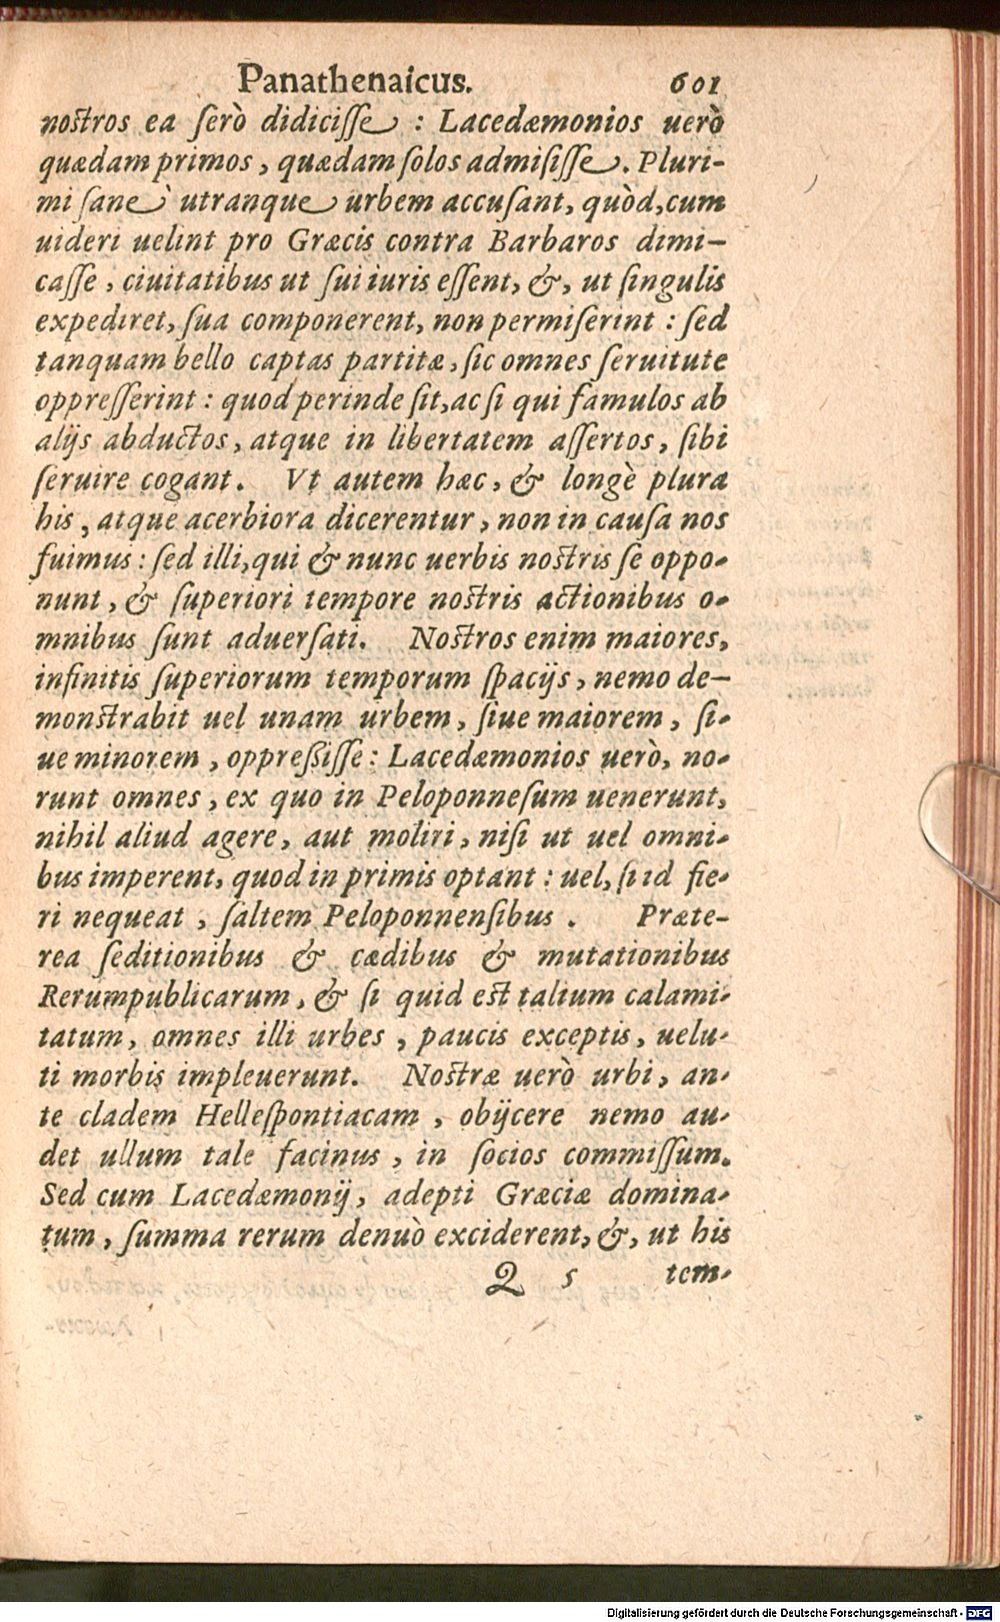 Panathenaicus. 601
noſtros ea ſerò didiciſſe : Lacedæmonios uerò
quædam primos, quædam ſolos admiſiſſe. Pluri-
mi ſanè utranque urbem accuſant, quòd, cum
uideri uelint pro Græcis contra Barbaros dimi-
caſſe, ciuitatibus ut ſui iuris eſſent, &, ut ſingulis
expediret, ſua componerent, non permiſerint : ſed
tanquam bello captas partitæ, ſic omnes ſeruitute
oppreſſerint : quod perinde ſit, ac ſi qui famulos ab
alijs abductos, atque in libertatem aſſertos, ſibi
ſeruire cogant. Vt autem hæc, & longè plura
his, atque acerbiora dicerentur, non in cauſa nos
fuimus : ſed illi, qui & nunc uerbis noſtris ſe oppo-
nunt, & ſuperiori tempore noſtris actionibus o-
mnibus ſunt aduerſati. Noſtros enim maiores,
infinitis ſuperiorum temporum ſpacijs, nemo de-
monſtrabit uel unam urbem, ſiue maiorem, ſi-
ue minorem, oppreßiſſe : Lacedæmonios uerò, no-
runt omnes, ex quo in Peloponneſum uenerunt,
nihil aliud agere, aut moliri, niſi ut uel omni-
bus imperent, quod in primis optant : uel, ſi id fie-
ri nequeat, ſaltem Peloponnenſibus. Præte-
rea ſeditionibus & cædibus & mutationibus
Rerumpublicarum, & ſi quid eſt talium calami-
tatum, omnes illi urbes, paucis exceptis, uelu-
ti morbis impleuerunt. Noſtræ uerò urbi, an-
te cladem Helleſpontiacam, obijcere nemo au-
det ullum tale facinus, in ſocios commiſſum.
Sed cum Lacedæmonij, adepti Græciæ domina-
tum, ſumma rerum denuò exciderent, &, ut his
Q 5 tem-
Digitalisierung gefördert durch die Deutsche Forschungsgemeinschaft - DFG